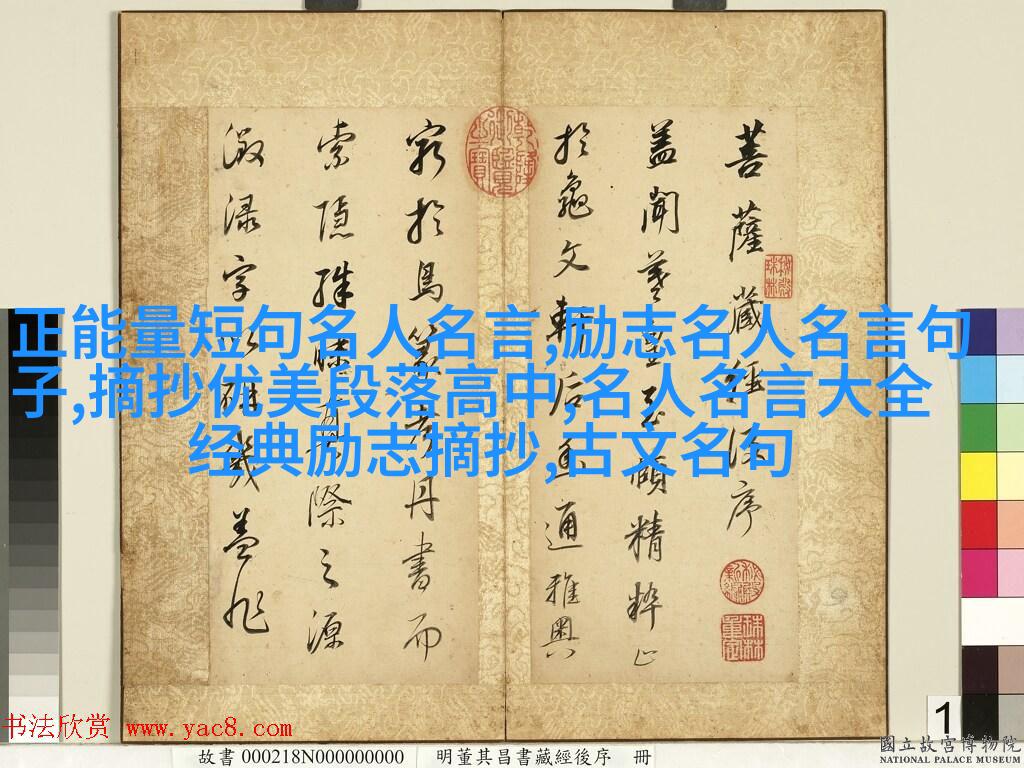 正能量短句名人名言,励志名人名言句
子,摘抄优美段落高中,名人名言大全
经典励志摘抄,古文名句
菩薩藏經後序
蓋聞羲皇至賾精粹止
於龜文軒后幽通雅奧
窮於鳥篆考丹書而
索隱殊昧實際之源
淥字以研幾蓋非
书法欣赏 www.yac8.com
故書 000218N000000000 明董其昌書藏經後序 冊
1
國立故宮博物院
NATIONAL PALACE MUSEUM